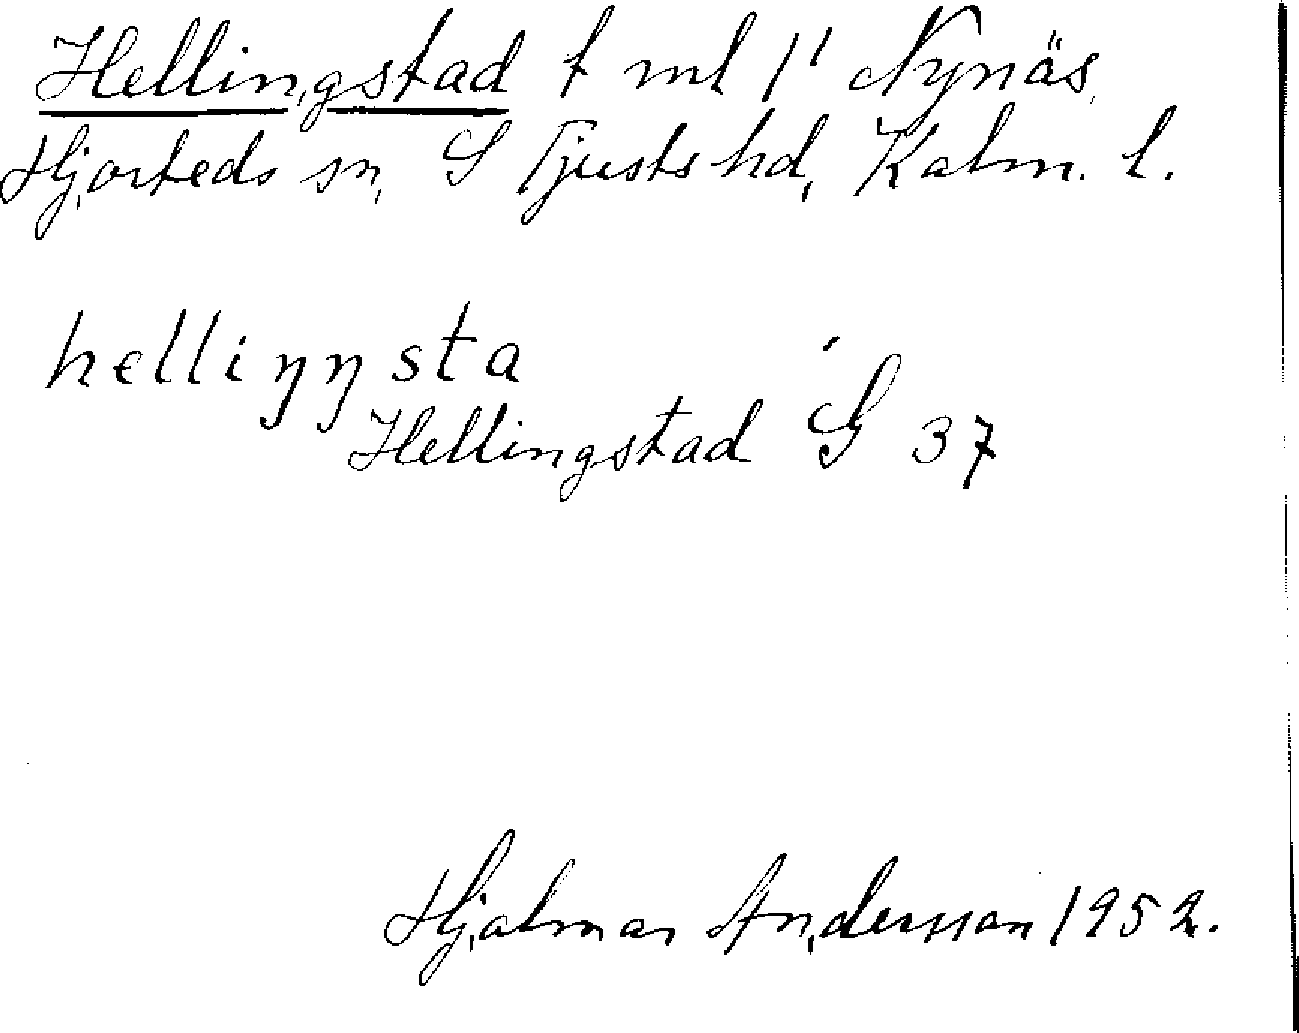 Hellingstad t ml 1' Nynäs,
Hjorteds sn, S Tjusts hd, Kalm. l.
helliŋŋsta
Hellingstad G 37
Hjalmar Andersson 1952.